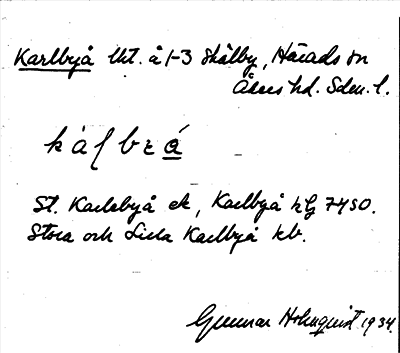 Karlbyå Ut. å 1-3 Skälby, Härads sn
Åkers hd. Sdm. l.
St. Karlabyå ek, Karlbyå hG 7450.
Stora och Lilla Karlbyå kb.
Gunnar Holmquist 1934.